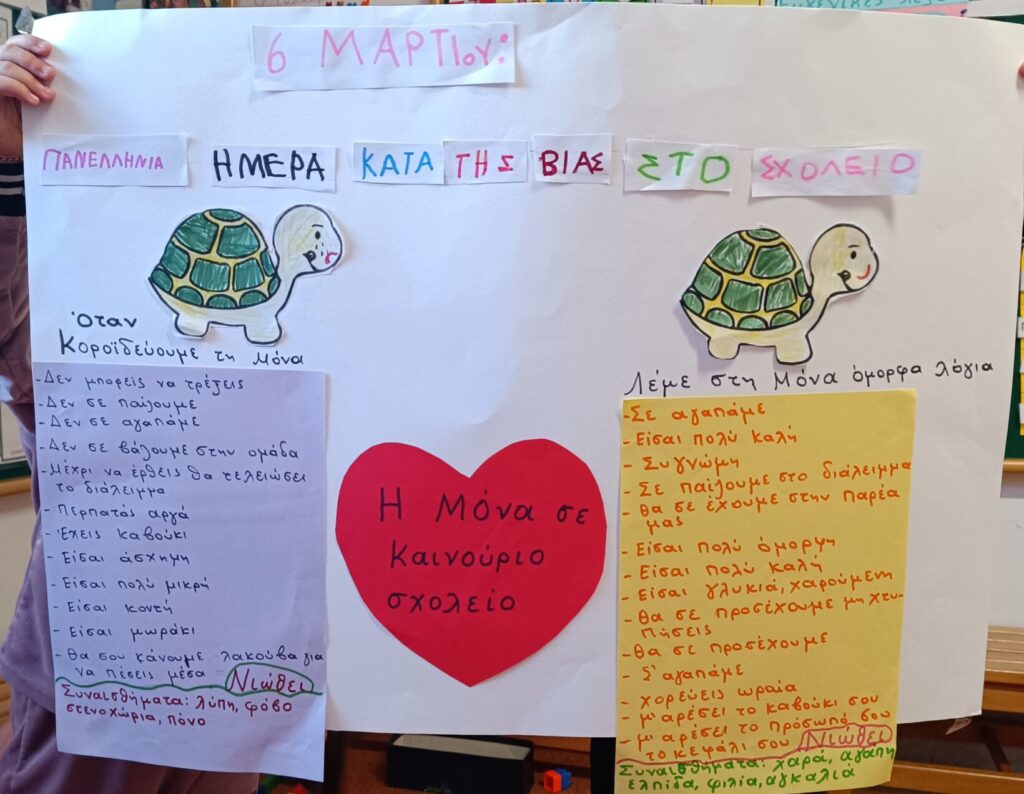 6 ΜΑΡΤΙου:
ΠΑΝΕΛΛΗΝΙΑ ΗΜΕΡΑ ΚΑΤΑ ΤΗΣ ΒΙΑΣ ΣΤΟ ΣΧΟΛΕΙΟ
Όταν
Κοροϊδεύουμε τη Μόνα
-Δεν μπορείς να τρέξεις
-Δεν σε παίζουμε
-Δεν σε αγαπάμε
-Δεν σε βάζουμε στην ομάδα
-Μέχρι να έρθεις θα τελειώσει
το διάλειμμα
-Περπατάς αργά
-Έχεις καβούκι
-Είσαι άσχημη
-Είσαι πολύ μικρή
-Είσαι κοντή
-Είσαι μωράκι
-Θα σου κάνουμε λακούβα για
να πέσεις μέσα Νιώθει
Συναισθήματα: λύπη, φόβο
στενοχώρια, πόνο
Η Μόνα σε
καινούριο
σχολείο
Λέμε στη Μόνα όμορφα λόγια
-Σε αγαπάμε
-Είσαι πολύ καλή
-Συγνώμη
-Σε παίζουμε στο διάλειμμα
-Θα σε έχουμε στην παρέα
μας
-Είσαι πολύ όμορφη
-Είσαι πολύ καλή
-Είσαι γλυκιά, χαρούμενη
-Θα σε προσέχουμε μη χτυ-
πήσεις
-Θα σε προσέχουμε
-Σ' αγαπάμε
-χορεύεις ωραία
-μ' αρέσει το καβούκι σου
-μ' αρέσει το πρόσωπό σου
το κεφάλι σου Νιώθει
Συναισθήματα: χαρά, αγάπη
ελπίδα, φιλία, αγκαλιά